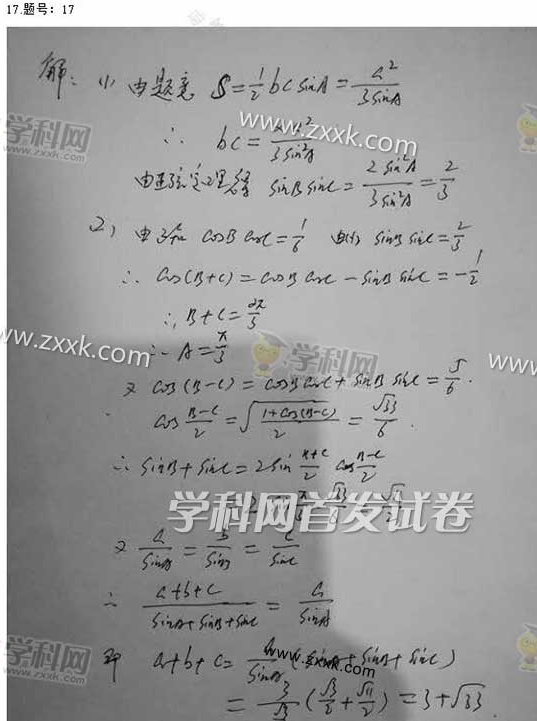 17.题号：17
解：(1) 由题意 S=½bcsinA=a²/3sinA
∴ bc=2a²/3sin²A
由正弦定理得 sinBsinC=2sin²A/3sin²A=2/3
2) 由 cosBcosC=1/6 由(1) sinBsinC=2/3
∴ cos(B+C)=cosBcosC-sinBsinC=-1/2
∴ B+C=2π/3
∴ A=π/3
又 cos(B-C)=cosBcosC+sinBsinC=5/6.
cos (B-C)/2=√(1+cos(B-C)/2)=√33/6.
∴ sinB+sinC=2sin (B+C)/2 cos (B-C)/2
√33/6 = √11/2
又 a/sinA=b/sinB=c/sinC
∴ a+b+c/sinA+sinB+sinC=a/sinA
即 a+b+c=a/sinA(sinA+sinB+sinC)
=3/(√3/2)(√3/2+√11/2)=3+√33
学科网首发试卷
学科网
www.zxxk.com